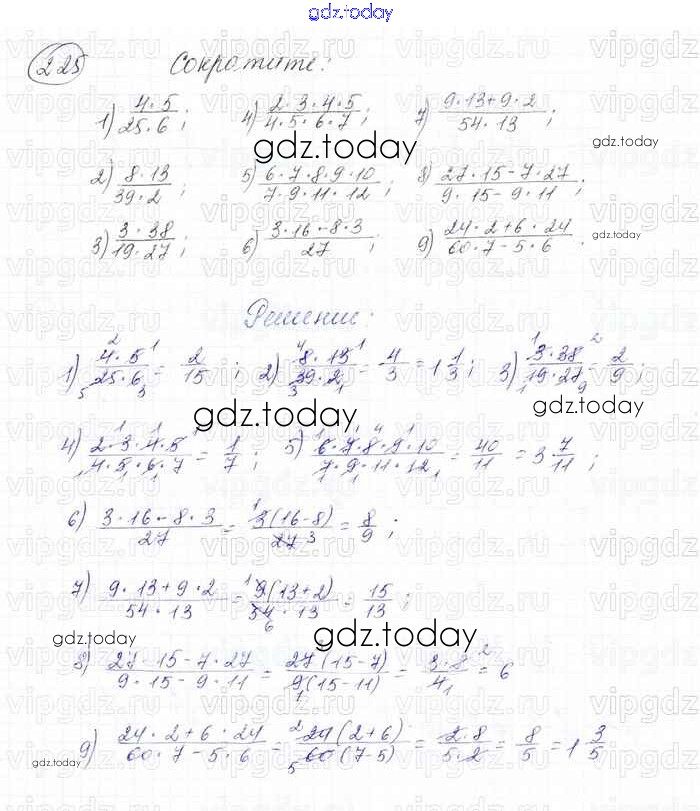 gdz.today
225 Сократите:
1) 4·5/25·6; 4) 2·3·4·5/4·5·6·7; 7) 9·13+9·2/54·13;
gdz.today
gdz.today
2) 8·13/39·2; 5) 6·7·8·9·10/7·9·11·12; 8) 27·15-7·27/9·15-9·11;
3) 3·38/19·27; 6) 3·16-8·3/27; 9) 24·2+6·24/60·7-5·6.
gdz.today
Решение:
1) 4·5/25·6 = 2/15; 2) 8·13/39·2 = 4/3 = 1 1/3; 3) 3·38/19·27 = 2/9;
gdz.today
gdz.today
4) 2·3·4·5/4·5·6·7 = 1/7; 5) 6·7·8·9·10/7·9·11·12 = 40/11 = 3 7/11;
6) 3·16-8·3/27 = 3(16-8)/27 = 8/9;
7) 9·13+9·2/54·13 = 9(13+2)/54·13 = 15/13;
gdz.today
gdz.today
8) 27·15-7·27/9·15-9·11 = 27(15-7)/9(15-11) = 3·8/4 = 6
9) 24·2+6·24/60·7-5·6 = 24(2+6)/60(7-5) = 2·8/5·2 = 8/5 = 1 3/5
gdz.today